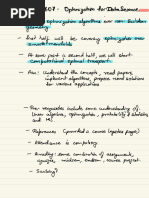 E07 - Optimization for Data Science
optimization algorithms over non-Euclidean
geometry
- First half will be covering optimization over
smooth manifolds
- At some point in second half, we will start
computational optimal transport.
- Aim: Understand the concepts, read papers,
implement algorithms, propose novel solutions
for various applications
- The requisites include some understanding of:
linear algebra, optimization, probability,
- References: (provided in course webpage page)
- Attendance is compulsory
- Grading: Some combination of assignments,
quizzes, midsem, endsem, course project
-